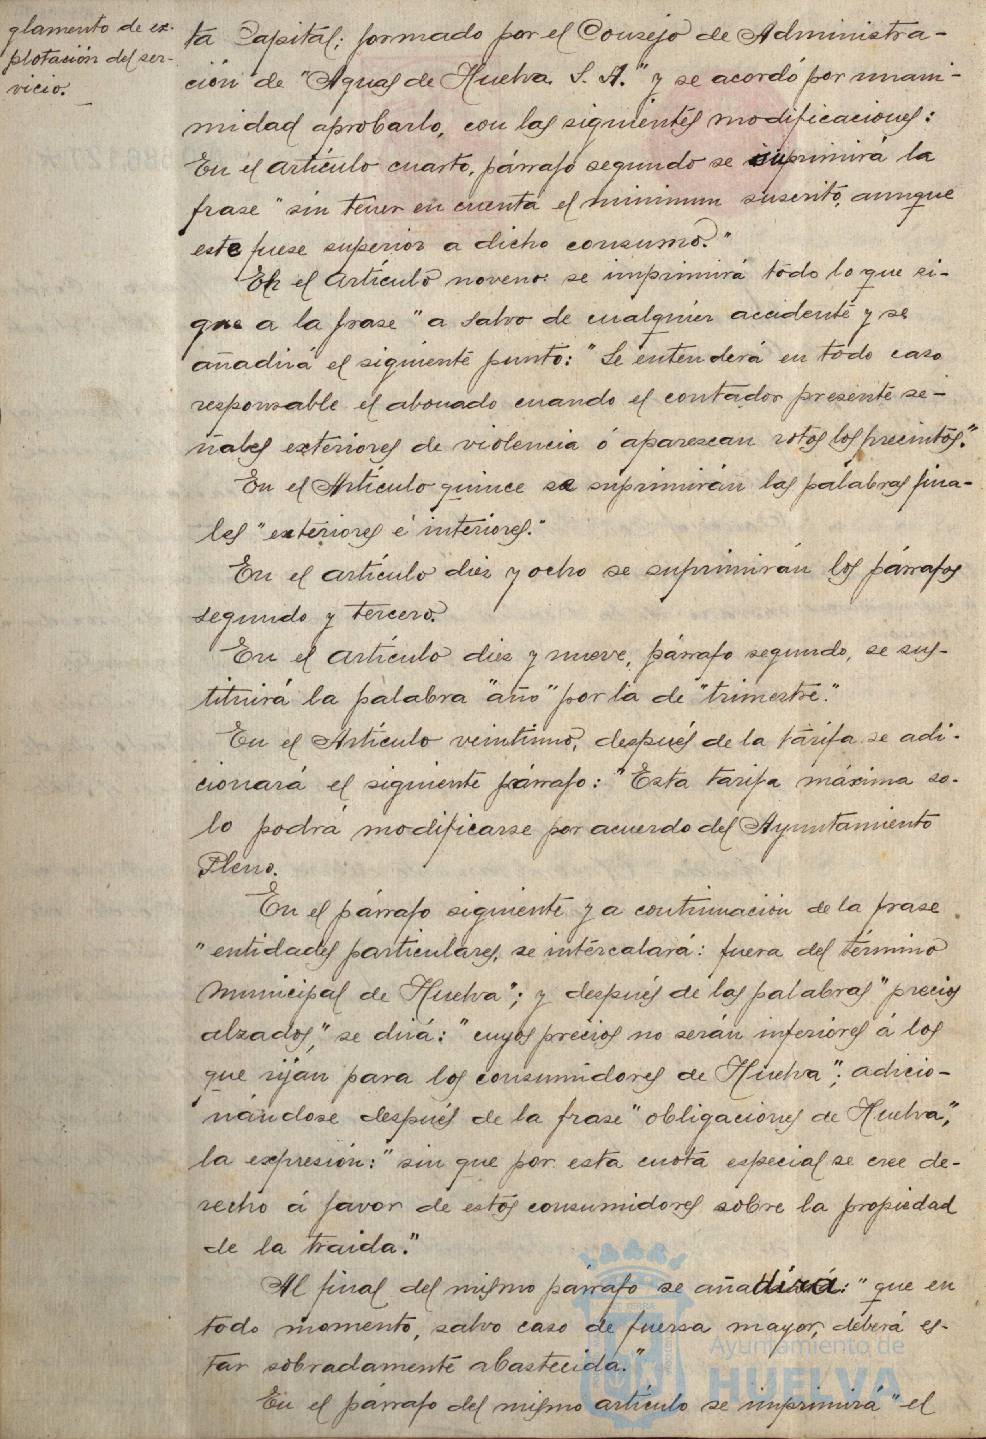 glamento de ex-
plotación del ser-
vicio.
ta Capital; formado por el Consejo de Administra-
ción de "Aguas de Huelva. S. A." y se acordó por unani-
midad aprobarlo, con las siguientes modificaciones:
En el artículo cuarto, párrafo segundo se suprimirá la
frase "sin tener en cuenta el minimum suscrito, aunque
este fuese superior a dicho consumo."
En el artículo noveno: se imprimirá todo lo que si-
gue a la frase "a salvo de cualquier accidente y se
añadirá el siguiente punto: "Se entenderá en todo caso
responsable el abonado cuando el contador presente se-
ñales exteriores de violencia ó aparezcan rotos los precintos."
En el Artículo quince se suprimirán las palabras fina-
les "exteriores é interiores."
En el artículo diez y ocho se suprimirán los párrafos
segundo y tercero.
En el artículo diez y nueve, párrafo segundo, se sus-
tituirá la palabra "año" por la de "trimestre."
En el Artículo veintiuno, después de la tarifa se adi-
cionará el siguiente párrafo: "Esta tarifa máxima so-
lo podrá modificarse por acuerdo del Ayuntamiento
Pleno.
En el párrafo siguiente y a continuación de la frase
"entidades particulares, se intercalará: fuera del término
municipal de Huelva"; y después de las palabras "precios
alzados," se dirá: "cuyos precios no serán inferiores á los
que rijan para los consumidores de Huelva"; adicio-
nándose después de la frase "obligaciones de Huelva",
la expresión: "sin que por esta cuota especial se cree de-
recho á favor de estos consumidores sobre la propiedad
de la traida."
Al final del mismo párrafo se añadirá: "que en
todo momento, salvo caso de fuersa mayor, deberá es-
tar sobradamente abastecida."
En el párrafo del mismo artículo se imprimirá "el
Ayuntamiento de
HUELVA